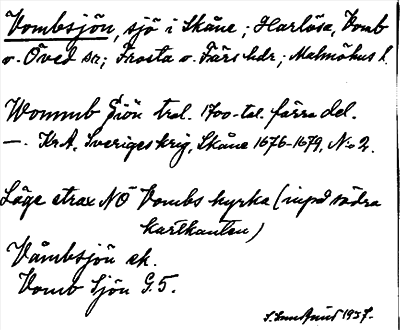 Vombsjön, sjö i Skåne; Harlösa, Vomb
o. Öved sn; Frosta o. Färs hdr; Malmöhus l.
Wommb Siön trol. 1700-tal. förra del.
—. KrA, Sveriges krig, Skåne 1676-1679, N:o 2.
Läge strax NÖ Vombs kyrka (inpå södra
kartkanten)
Våmbsjön ek.
Vomb Sjön G.5.
1937.